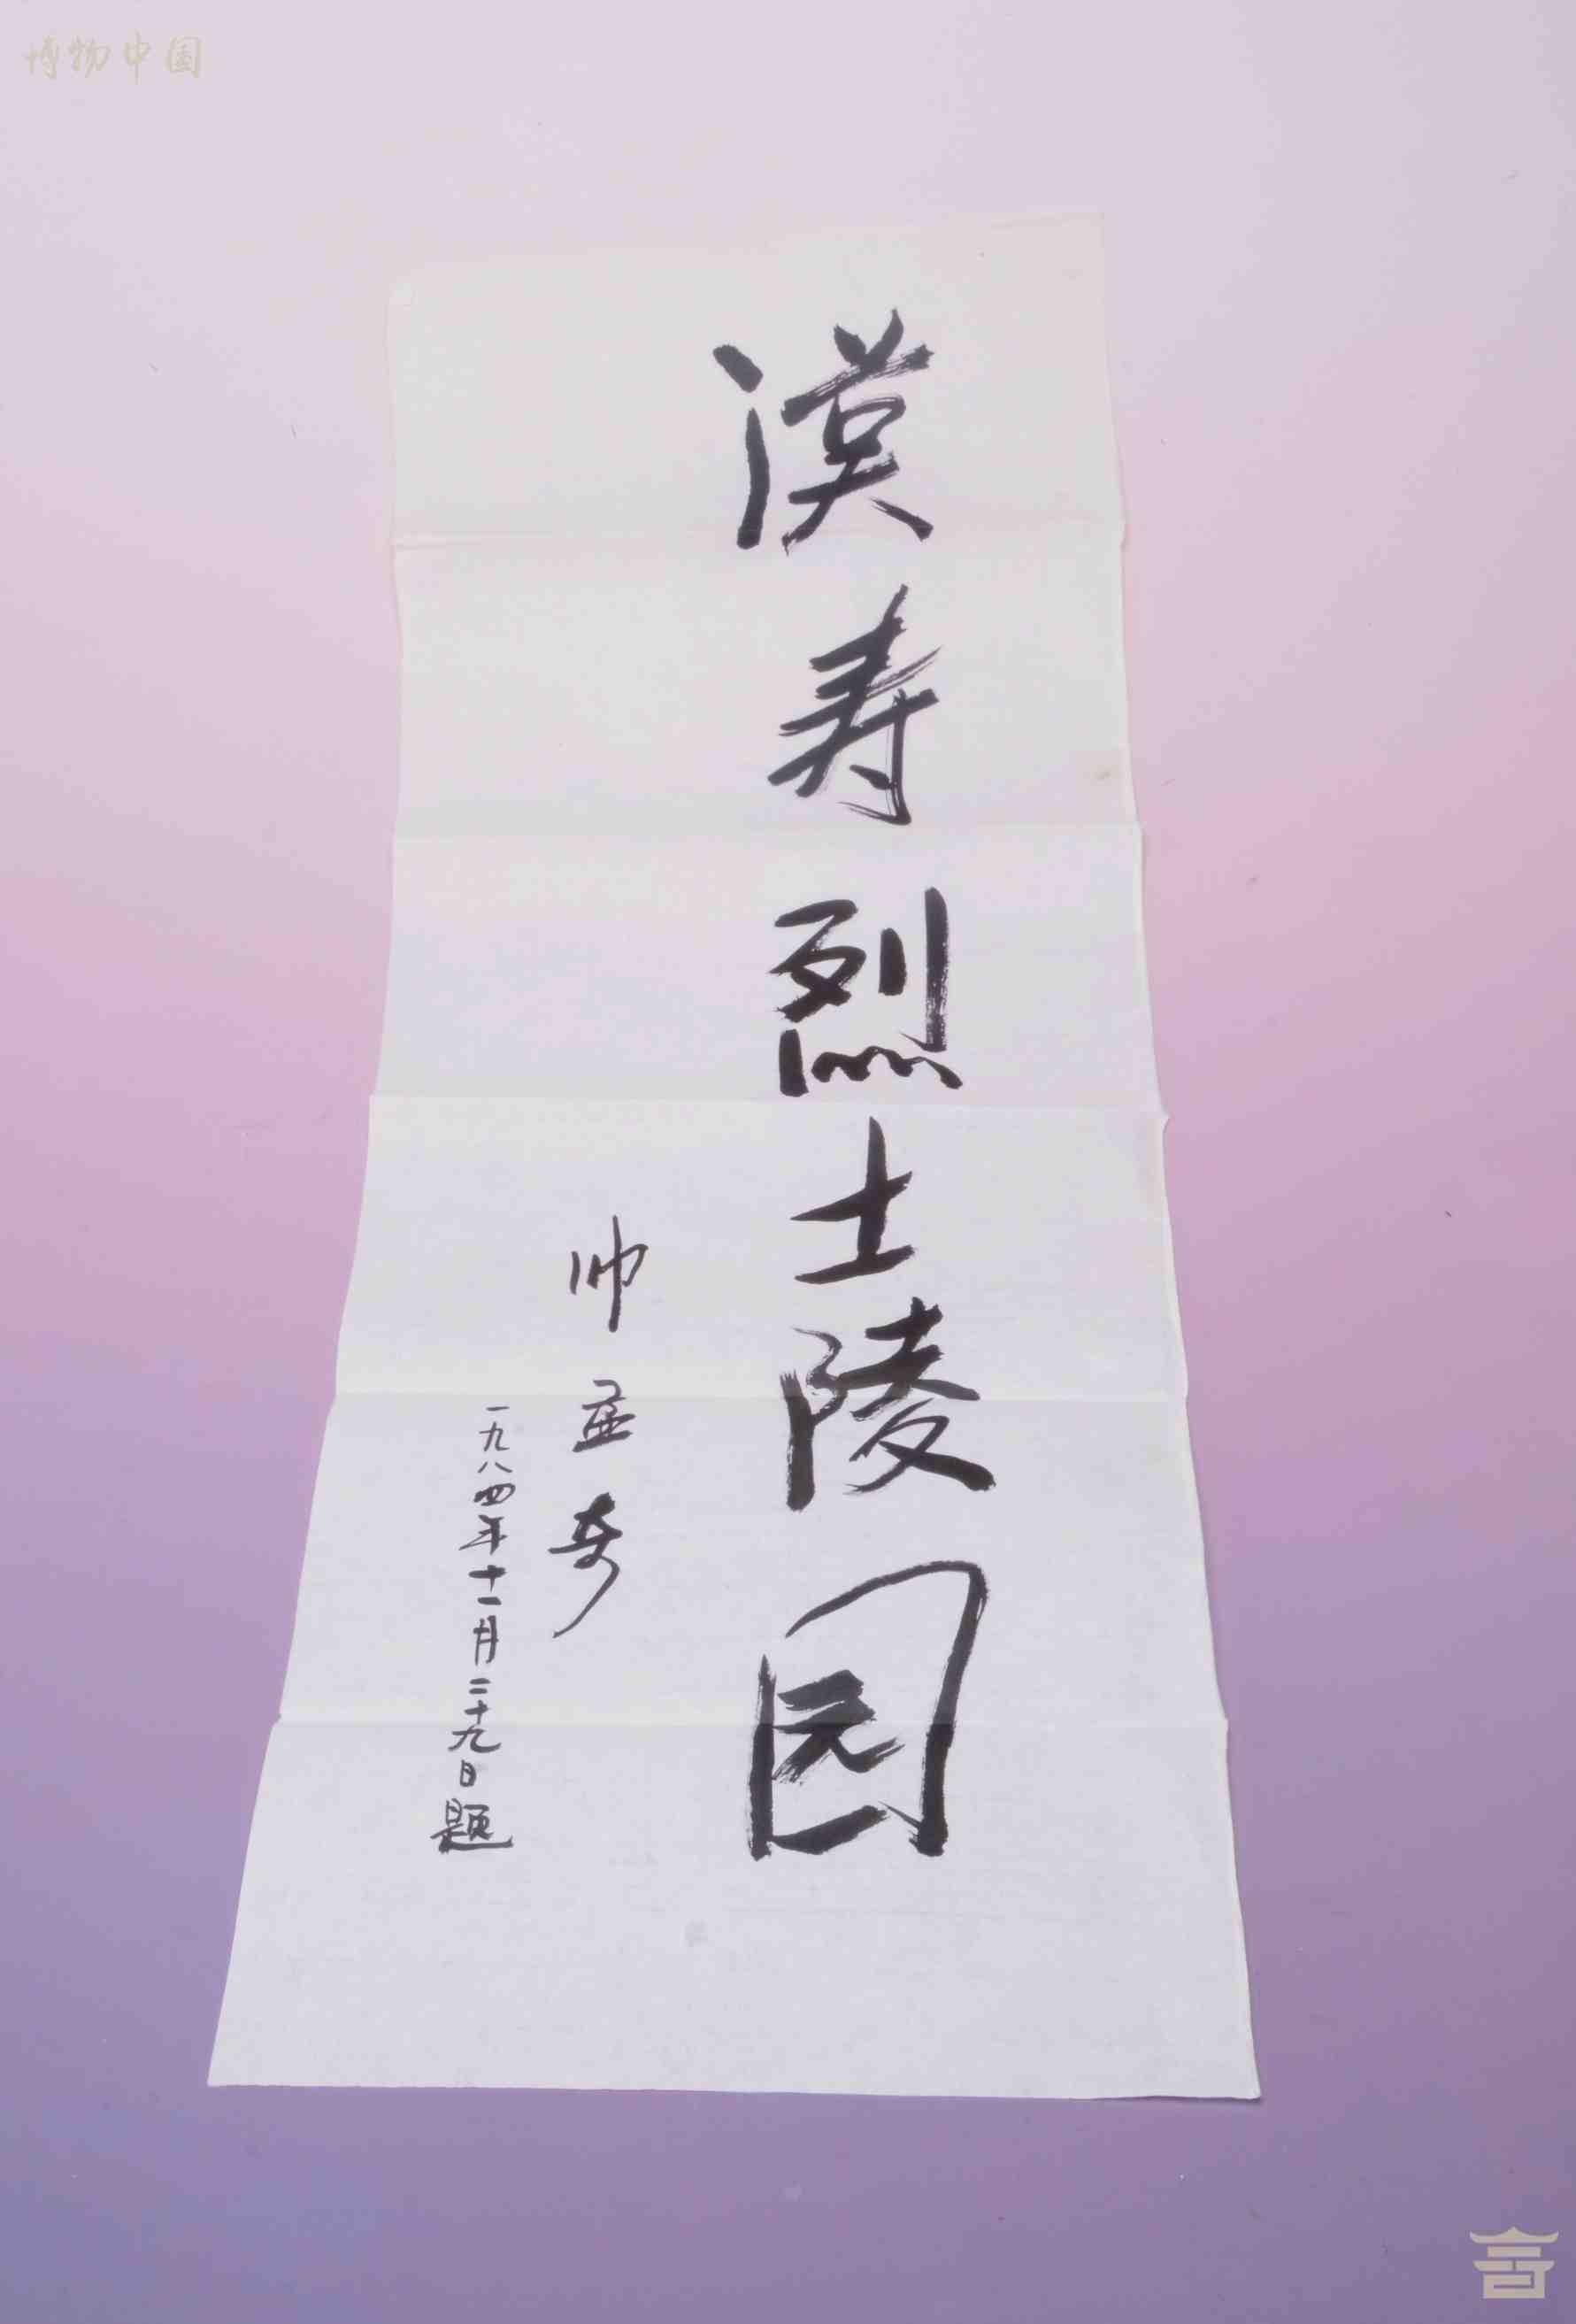 博物中国
漢寿烈士陵园
帅孟奇
一九八四年十一月二十九日题